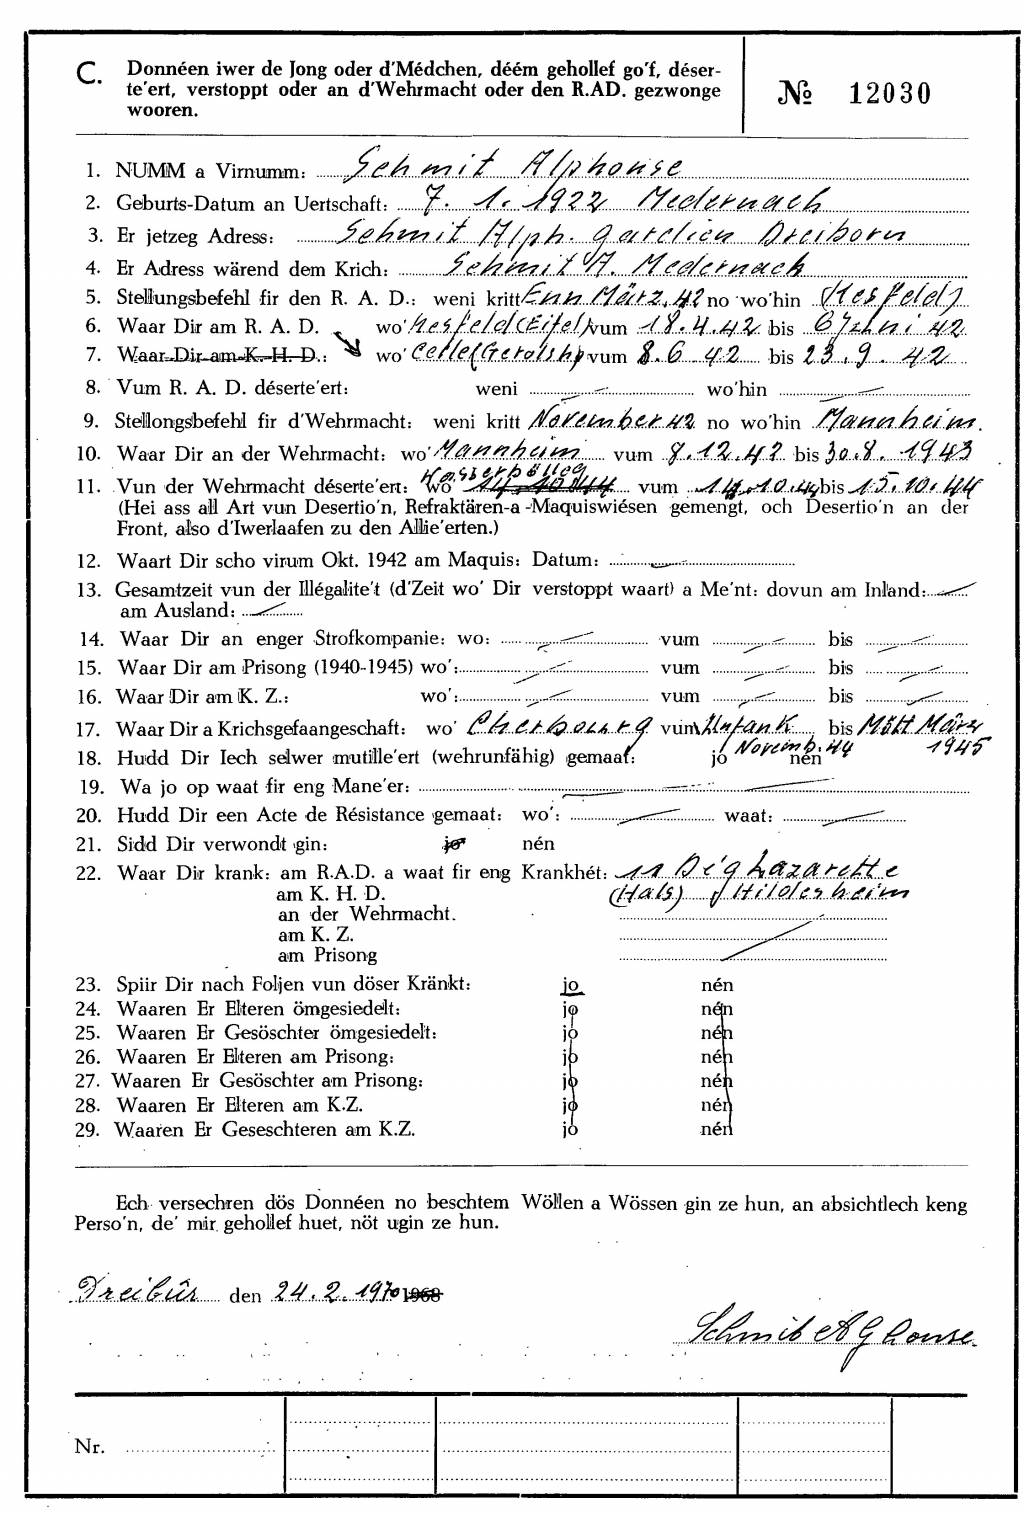 C. Donnéen iwer de Jong oder d'Médchen, déém gehollef go'f, déser-
te'ert, verstoppt oder an d'Wehrmacht oder den R.AD. gezwonge
wooren.
№ 12030
1. NUMM a Virnumm: Schmit Alphonse
2. Geburts-Datum an Uertschaft: 7. 1. 1922 Medernach
3. Er jetzeg Adress: Schmit Alph. gardien Dreiborn
4. Er Adress wärend dem Krich: Schmit A. Medernach
5. Stellungsbefehl fir den R. A. D.: weni kritt Enn März 42 no wo'hin (Hesfeld)
6. Waar Dir am R. A. D. wo' Hesfeld (Eifel) vum 18.4.42 bis 6 Juni 42
7. Waar Dir am K. H. D.: wo' Celle vum 8.6.42 bis 23.9.42
8. Vum R. A. D. déserte'ert: weni wo'hin
9. Stellongsbefehl fir d'Wehrmacht: weni kritt November 42 no wo'hin Mannheim.
10. Waar Dir an der Wehrmacht: wo' Mannheim vum 8.12.42 bis 30.8.1943
11. Vun der Wehrmacht déserte'ert: wo' vum 14.10.44 bis 15.10.44
(Hei ass all Art vun Desertio'n, Refraktären-a -Maquiswiésen gemengt, och Desertio'n an der
Front, also d'Iwerlaafen zu den Allie'erten.)
12. Waart Dir scho virum Okt. 1942 am Maquis: Datum:
13. Gesamtzeit vun der Illégalite't (d'Zeit wo' Dir verstoppt waart) a Me'nt: dovun am Inland:
am Ausland:
14. Waar Dir an enger Strofkompanie: wo: vum bis
15. Waar Dir am Prisong (1940-1945) wo': vum bis
16. Waar Dir am K. Z.: wo': vum bis
17. Waar Dir a Krichsgefaangeschaft: wo' Cherbourg vum Unfank bis Mëtt März
Novemb. 44 1945
18. Hudd Dir Iech selwer mutille'ert (wehrunfähig) gemaat: jo nén
19. Wa jo op waat fir eng Mane'er:
20. Hudd Dir een Acte de Résistance gemaat: wo': waat:
21. Sidd Dir verwondt gin: jo nén
22. Waar Dir krank: am R.A.D. a waat fir eng Krankhét: 11 Lazarette
am K. H. D. (Hals) Hildesheim
an der Wehrmacht.
am K. Z.
am Prisong
23. Spiir Dir nach Foljen vun döser Kränkt: jo nén
24. Waaren Er Elteren ömgesiedelt: jo nén
25. Waaren Er Gesöschter ömgesiedelt: jo nén
26. Waaren Er Elteren am Prisong: jo nén
27. Waaren Er Gesöschter am Prisong: jo nén
28. Waaren Er Elteren am K.Z. jo nén
29. Waaren Er Geseschteren am K.Z. jo nén
Ech versechren dös Donnéen no beschtem Wöllen a Wössen gin ze hun, an absichtlech keng
Perso'n, de' mir gehollef huet, nöt ugin ze hun.
Dreibûs den 24.2.1970 1968
Schmit Alphonse
Nr.